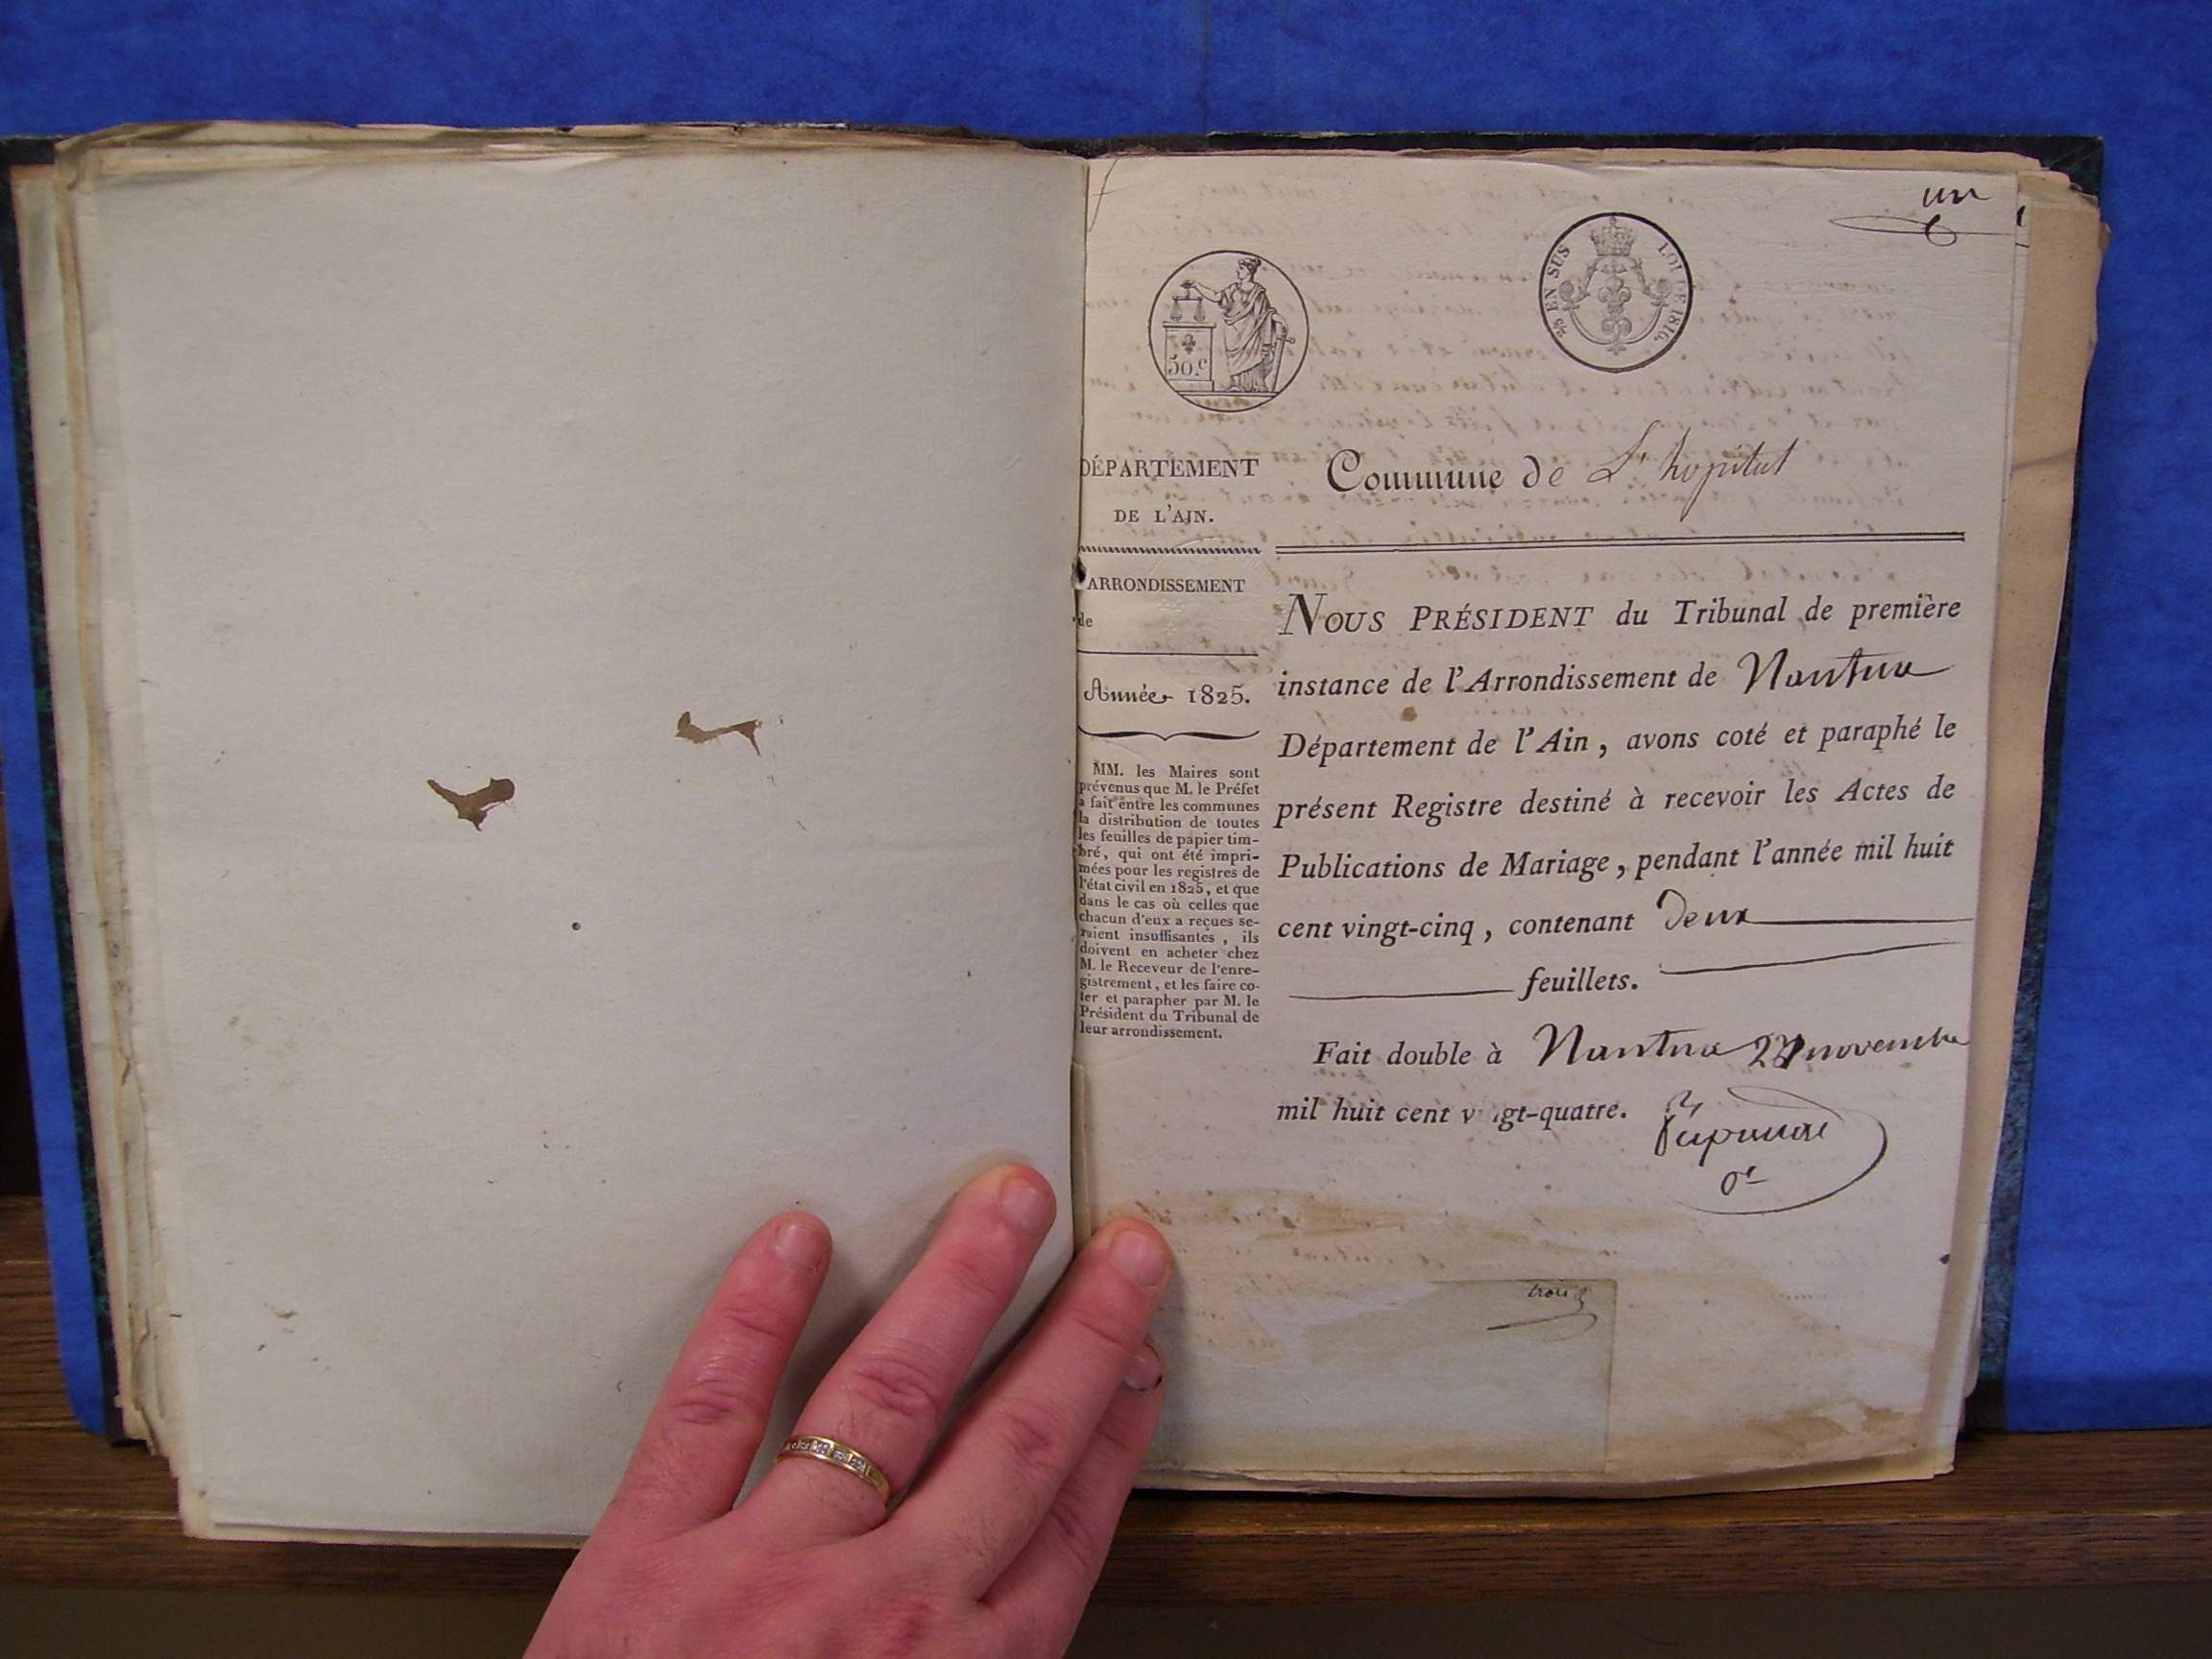 un
50.c
EN SUS LOI DE 1816.
DÉPARTEMENT
DE L'AIN.
Commune de L'hopital
ARRONDISSEMENT
de
Année 1825.
MM. les Maires sont
prévenus que M. le Préfet
a fait entre les communes
la distribution de toutes
les feuilles de papier tim-
bré, qui ont été impri-
mées pour les registres de
l'état civil en 1825, et que
dans le cas où celles que
chacun d'eux a reçues se-
raient insuffisantes, ils
doivent en acheter chez
M. le Receveur de l'enre-
gistrement, et les faire co-
ter et parapher par M. le
Président du Tribunal de
leur arrondissement.
NOUS PRÉSIDENT du Tribunal de première
instance de l'Arrondissement de Nantua
Département de l'Ain, avons coté et paraphé le
présent Registre destiné à recevoir les Actes de
Publications de Mariage, pendant l'année mil huit
cent vingt-cinq, contenant deux
feuillets.
Fait double à Nantua novembre
mil huit cent v gt-quatre.
trois